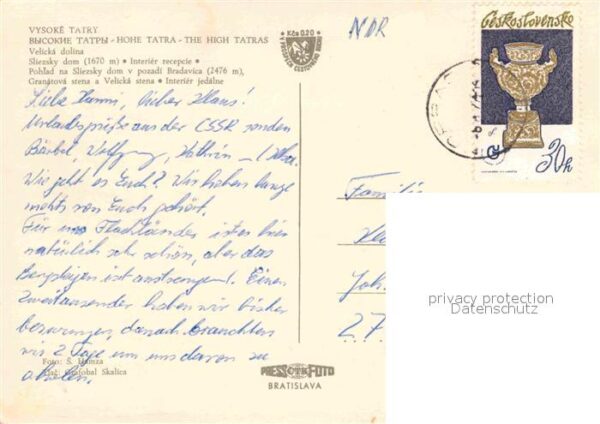 VYSOKÉ TATRY
ВЫСОКИЕ ТАТРЫ - HOHE TATRA - THE HIGH TATRAS
Velická dolina
Sliezsky dom (1670 m) • Interiér recepcie •
Pohľad na Sliezsky dom v pozadí Bradavica (2476 m),
Granátová stena a Velická stena • Interiér jedálne
Kčs 0,20
NDR
Československo
30h
Liebe Hanni, lieber Klaus!
Urlaubsgrüße aus der CSSR senden
Bärbel, Wolfgang, Kathrin
Wie geht es Euch? Wir haben lange
nichts von Euch gehört.
Für uns Flachländer ist es hier
natürlich sehr schön, aber das
Bergsteigen ist anstrengend! Einen
Zweitausender haben wir bisher
bezwungen, danach brauchten
wir 2 Tage um uns davon zu
erholen.
Familie
Joh
27
privacy protection
Datenschutz
Foto: Š. Hamza
Tlač: Grafobal Skalica
PRESSFOTO
BRATISLAVA